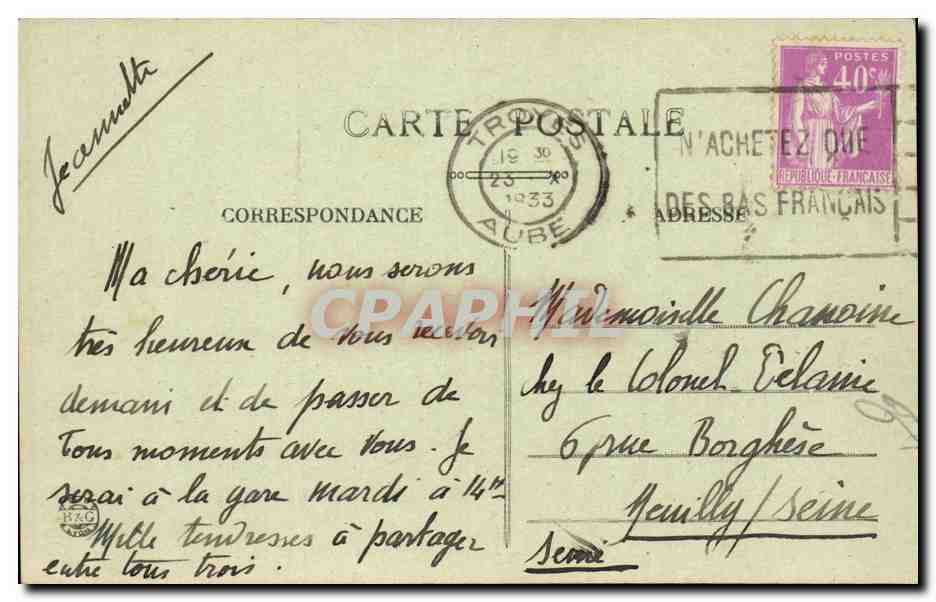 Jeannette
CARTE POSTALE
TROYES
19 30
23 X
1933
AUBE
POSTES
40c
REPUBLIQUE-FRANCAISE
N'ACHETEZ QUE
DES BAS FRANÇAIS
CORRESPONDANCE
ADRESSE
Ma chérie, nous serons
très heureux de vous recevoir
demain et de passer de
bons moments avec vous. Je
serai à la gare mardi à 14h
Mille tendresses à partager
entre tous trois.
B&G
Mademoiselle Chanoine
chez le Colonel
6 rue Borghèse
Neuilly/Seine
Seine
99
CPARHEL